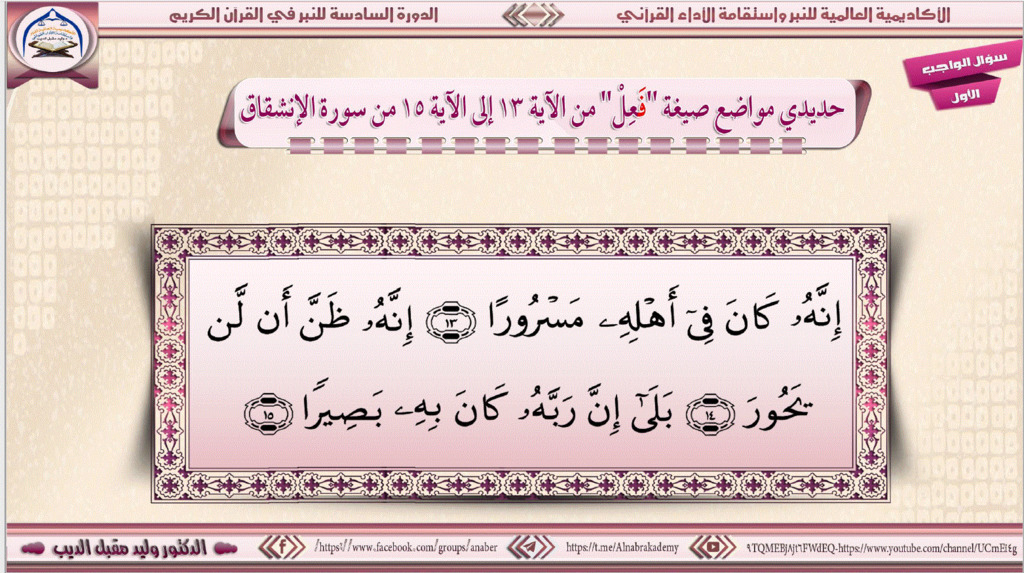 الأكاديمية العالمية للنبر واستقامة الأداء القرآني
الدورة السادسة للنبر في القرآن الكريم
سؤال الواجب
الأول
حديدي مواضع صيغة "فَعِلْ" من الآية ١٣ إلى الآية ١٥ من سورة الإنشقاق
إِنَّهُۥ كَانَ فِىٓ أَهْلِهِۦ مَسْرُورًا ١٣ إِنَّهُۥ ظَنَّ أَن لَّن
يَحُورَ ١٤ بَلَىٰٓ إِنَّ رَبَّهُۥ كَانَ بِهِۦ بَصِيرًا ١٥
الدكتور وليد مقبل الديب
https://www.facebook.com/groups/anaber
https://t.me/Alnabrakademy